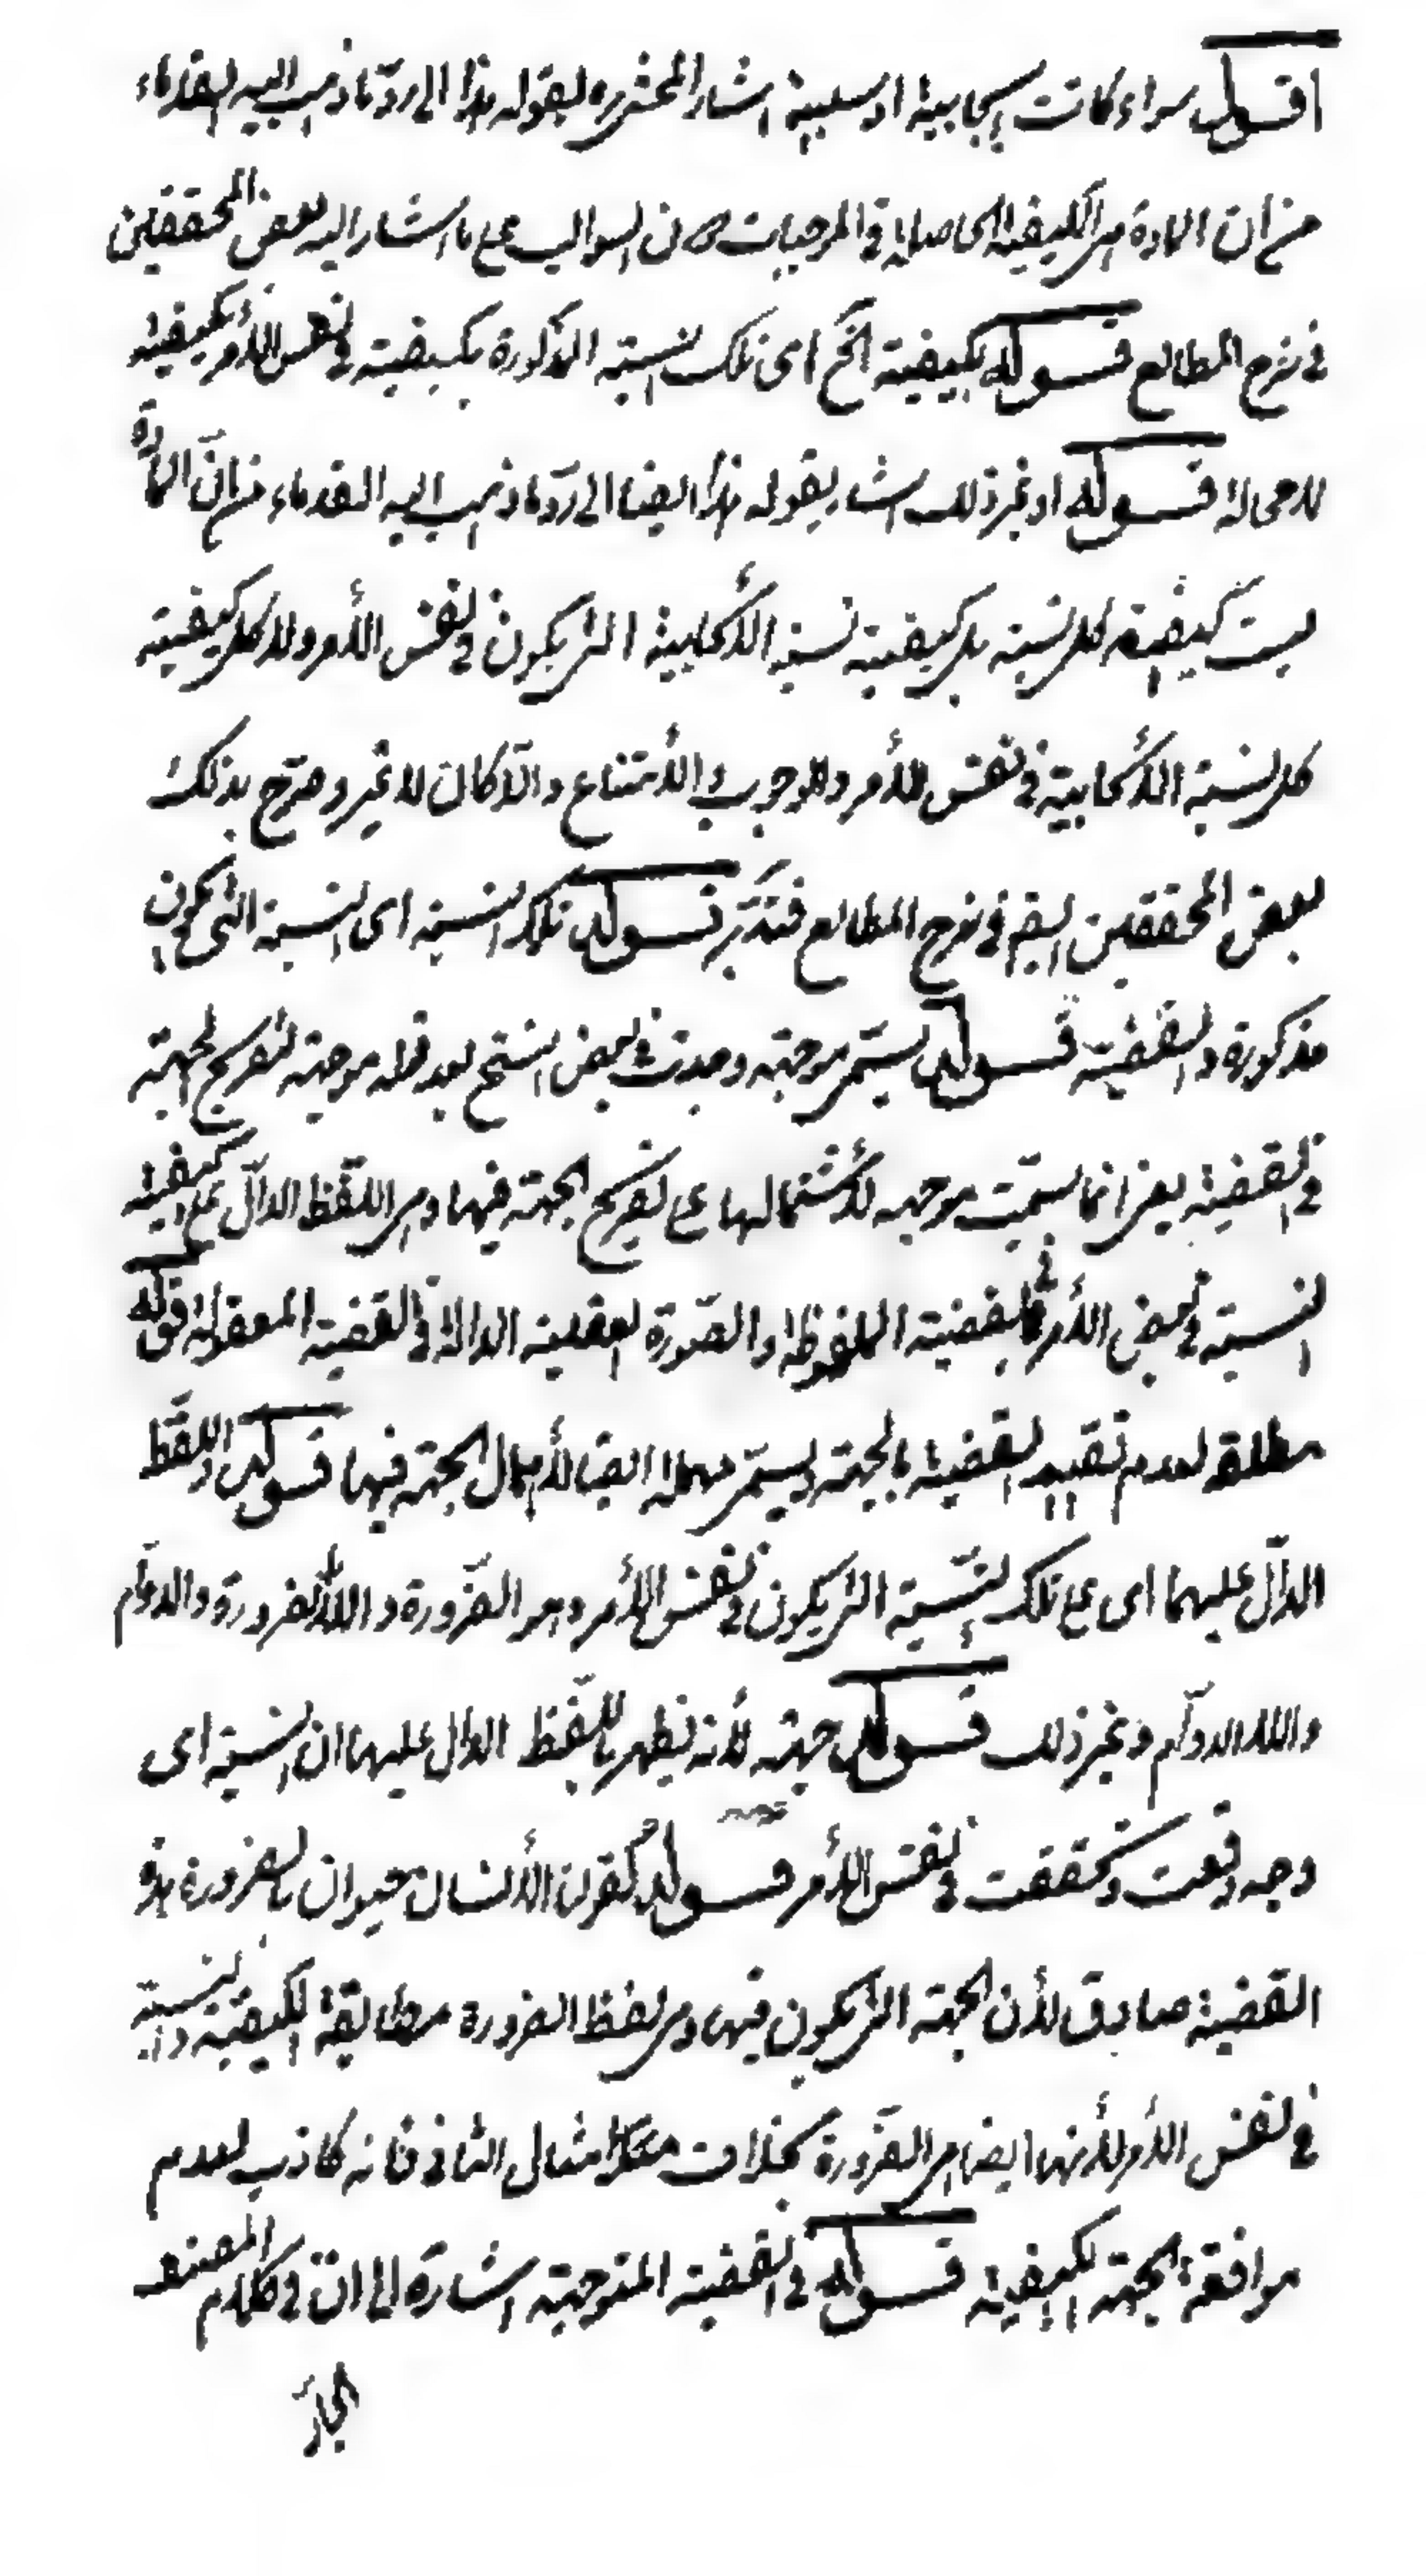 اقول سواء كانت ايجابية او سلبية اشار المحشى ره بقوله هذا الى ردّ ما ذهب اليه القدماء
من ان المادة هى الكيفية الحاصلة فى الموجبات دون السوالب على ما اشار اليه بعض المحققين
فى شرح المطالع قوله بكيفية الخ اى تلك النسبة المذكورة بكيفية فى نفس الأمر بكيفية
لا محالة قوله او غير ذلك اشار بقوله هذا ايضا الى ردّ ما ذهب اليه القدماء من انّ المادة
ليست كيفية كل نسبة بل كيفية نسبة الأيجابية التى يكون فى نفس الأمر ولا كل كيفية
كل نسبة الأيجابية فى نفس الأمر والوجوب والأمتناع والأمكان لا غير وصرّح بذلك
بعض المحققين ايضم فى شرح المطالع فتدبّر قوله تلك النسبة اى النسبة التى يكون
مذكورة فى القضية قوله يسمّى موجهة وجدت فى بعض النسخ بعد قوله موجهة لتصريح الجهة
فى القضية يعنى انما سمّيت موجهه لأشتمالها على تصريح الجهة فيها وهى اللّفظ الدالّ على كيفية
النسبة فى نفس الأمر فى القضية الملفوظة او الصّورة العقلية الدالة فى القضية المعقولة قوله
مطلقة لعدم تقييد القضية بالجهة ويسمّى مهملة ايضا لأهمال الجهة فيها قوله واللفظ
الدالّ عليهما اى على تلك النّسبة التى يكون فى نفس الأمر وهى الضّرورة واللاضرورة والدوام
واللا الدوام وغير ذلك قوله جهة لأنه يظهر باللّفظ الدال عليها ان النسبة اى
وجه وقعت وتحققت فى نفس الأمر قوله كقولنا الأنسان حيوان بالضرورة هذه
القضية صادق لأن الجهة التى يكون فيها وهى لفظ الضرورة مطابقة لكيفية النسبة
فى نفس الأمر لأنها ايضا هى الضّرورة بخلاف مثال الثانى فانه كاذب لعدم
موافقة الجهة لكيفية قوله فى القضية الموجهة اشارة الى انّ فى كلام المصنف